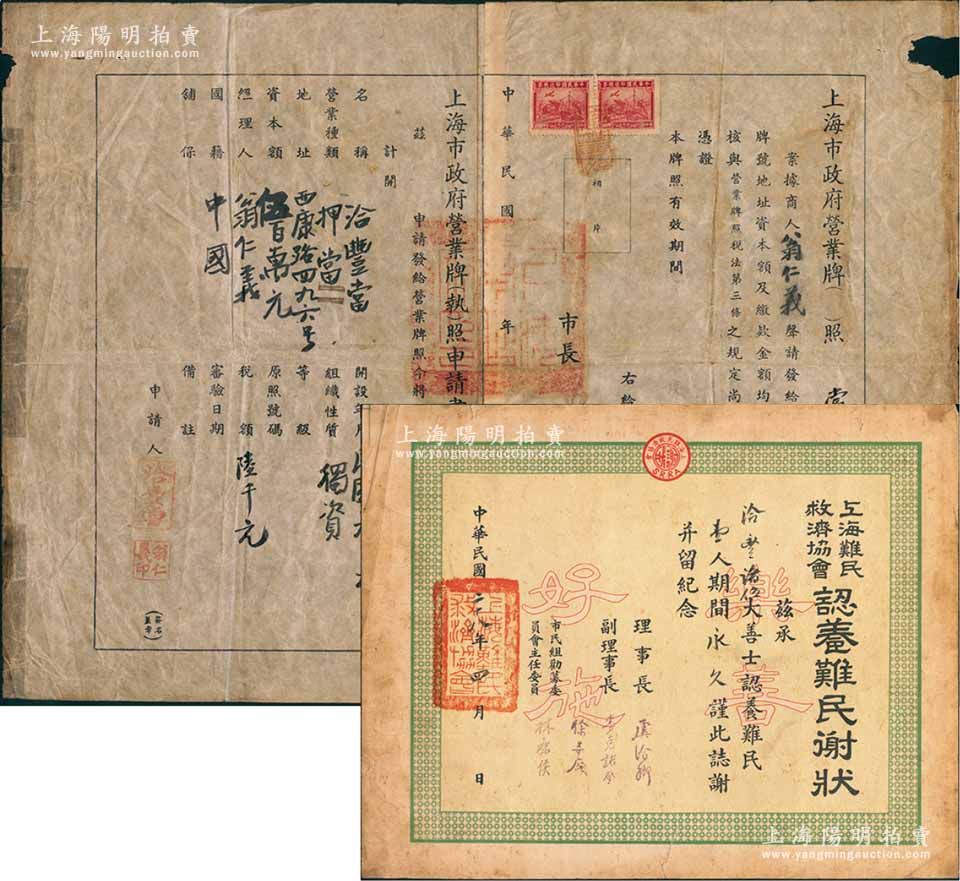 上海陽明拍賣
www.yangmingauction.com
上海陽明拍賣
www.yangmingauction.com
上海市政府營業牌(　)照
案據商人翁仁義聲請發給
牌號地址資本額及繳款金額均
核與營業牌照稅法第三條之規定尚
憑證
本牌照有效期間
相片
右給
市長
中華民國　年
上海市政府營業牌(執)照申請書
茲　申請發給營業牌照今將
計開
名稱　洽豐當
營業種類　押當
地址　西康路四九六号
資本額　伍百萬元
經理人　翁仁義
國籍　中國
舖保
開設年月
組織性質　獨資
等級
原照號碼
稅額　陸千元
審驗日期
備註
申請人
翁仁義印
上海陽明拍賣
www.yangmingauction.com
SRRA
上海難民救濟協會認養難民謝狀
茲承
大善士認養難民
人期間永久謹此誌謝
并留紀念
樂善好施
理事長　虞洽卿
副理事長
市民組勸募委員會主任委員　林康侯
中華民國二十八年四月　日
上海難民救濟協會
上海陽明拍賣
www.yangmingauction.com